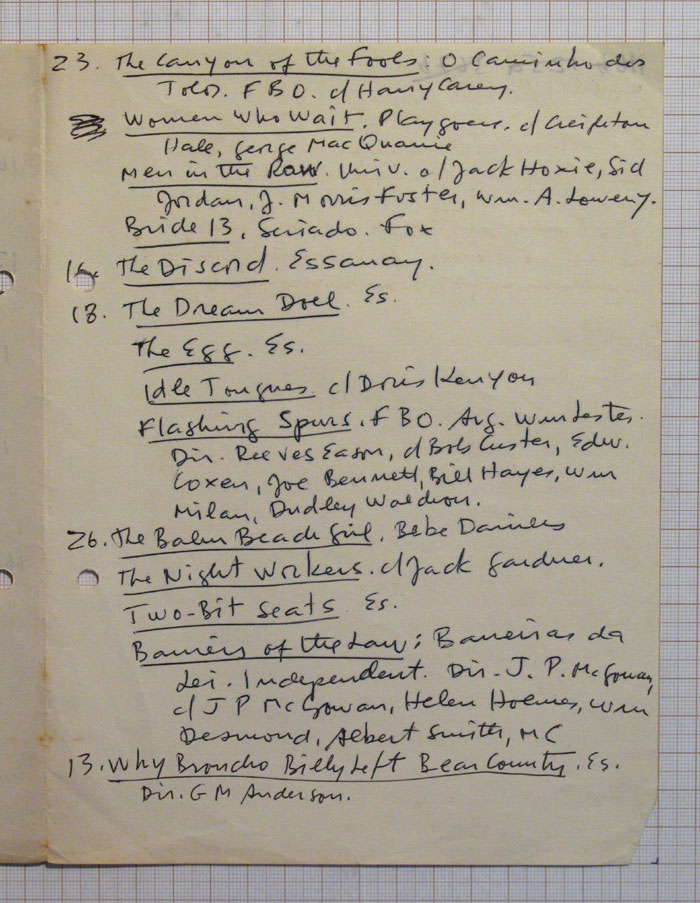 23. The Canyon of the Fools O Caminho dos
Tolos. FBO. c/ Harry Carey.
Women Who Wait. Playgoers. c/ Creighton
Hale, George MacQuarrie
Men in the Raw. Univ. c/ Jack Hoxie, Sid
Jordan, J. Morris Foster, Wm. A. Lowery.
Bride 13, Seriado. Fox
16. The Discard. Essanay.
18. The Dream Doll. Es.
The Egg. Es.
Idle Tongues c/ Doris Kenyon
Flashing Spurs. FBO. Arg. Wm Lester.
Dir. Reeves Eason, c/ Bob Custer, Edw.
Coxen, Joe Bennett, Bill Hayes, Wm
Milan, Dudley Waldron.
26. The Palm Beach Girl. Bebe Daniels
The Night Workers. c/ Jack Gardner.
Two-Bit Seats Es.
Barriers of the Law: Barreiras da
Lei. Independent. Dir. J. P. McGowan,
c/ J P McGowan, Helen Holmes, Wm
Desmond, Albert Smith, MC
13. Why Broncho Billy Left Bear County. Es.
Dir. G M Anderson.